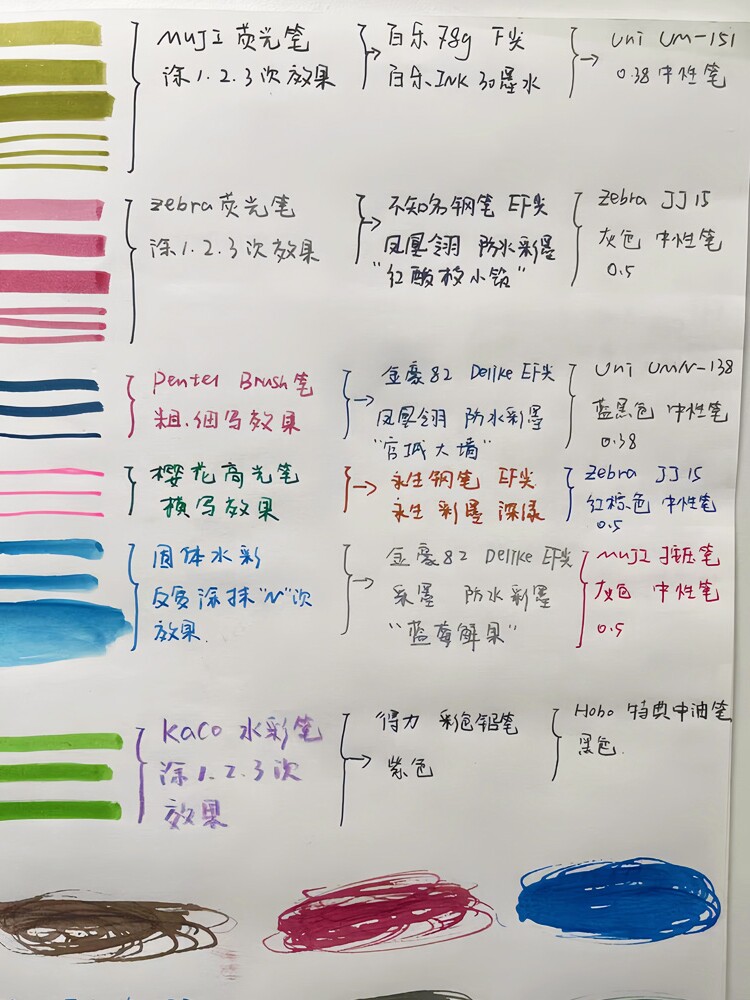 MUJI 荧光笔
涂1.2.3次效果
百乐 78g F尖
百乐 INK 30 墨水
uni UM-151
0.38 中性笔
zebra 荧光笔
涂1.2.3次效果
不知名钢笔 EF尖
凤凰翎 防水彩墨
"红酸枝小馆"
zebra JJ15
灰色 中性笔
0.5
Pentel Brush笔
粗.细写效果
金豪82 Delike EF尖
凤凰翎 防水彩墨
"宫城大墙"
Uni UMN-138
蓝黑色 中性笔
0.38
樱花高光笔
横写效果
永生钢笔 EF尖
永生 彩墨
zebra JJ15
红棕色 中性笔
0.5
固体水彩
反复涂抹"N"次
效果.
金豪82 Delike EF尖
采墨 防水彩墨
MUJI 按压笔
灰色 中性笔
0.5
Kaco 水彩笔
涂1.2.3次
效果
得力 彩色铅笔
紫色
Hobo 特典中油笔
黑色.